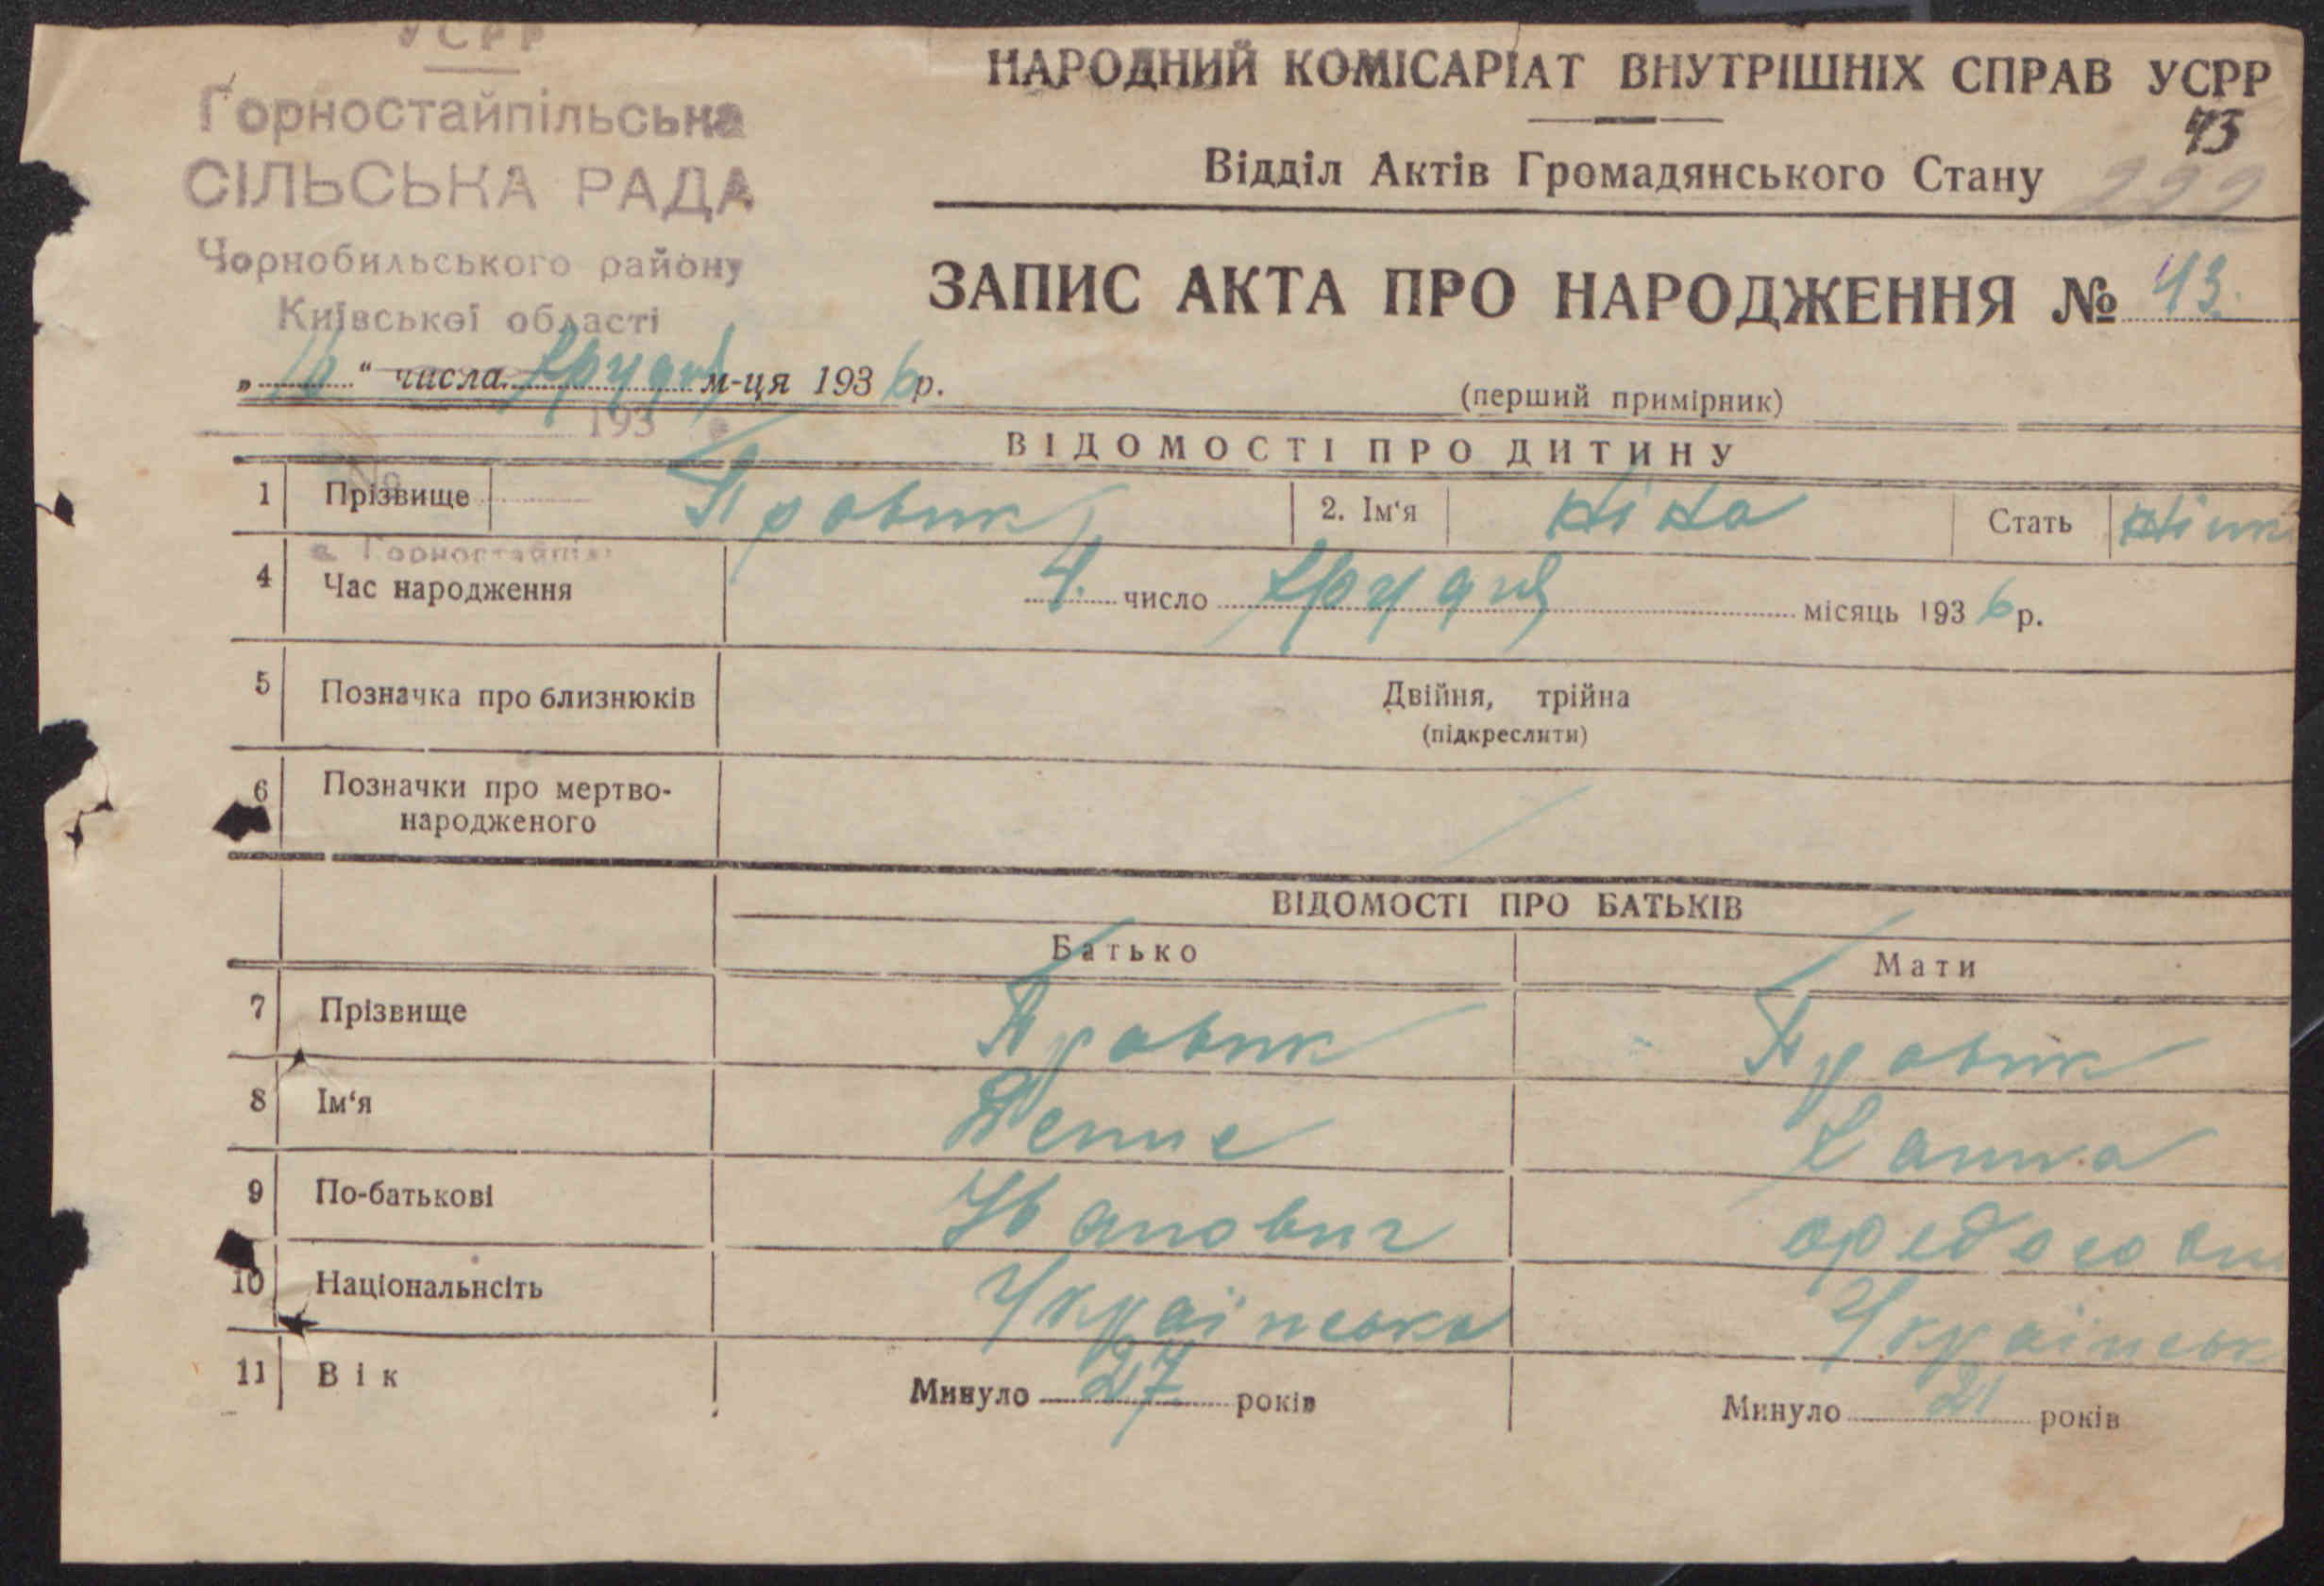 УСРР
Горностайпільська
СІЛЬСЬКА РАДА
Чорнобильського району
Київської області
НАРОДНИЙ КОМІСАРІАТ ВНУТРІШНІХ СПРАВ УСРР
Відділ Актів Громадянського Стану
222
ЗАПИС АКТА ПРО НАРОДЖЕННЯ №
„ 10 “ числа грудня м-ця 1936 р.
(перший примірник)
193
ВІДОМОСТІ ПРО ДИТИНУ
№
1 Прізвище Правик 2. Ім'я Ніна Стать
4 Час народження 4. число грудня місяць 1936 р.
5 Позначка про близнюків Двійня, трійна
(підкреслити)
6 Позначки про мертво-
народженого
ВІДОМОСТІ ПРО БАТЬКІВ
Батько Мати
7 Прізвище Правик Правик
8 Ім'я Денис Ганна
9 По-батькові Іванович
10 Національнсіть Українська Українськ
11 Вік Минуло 27 років Минуло 21 років